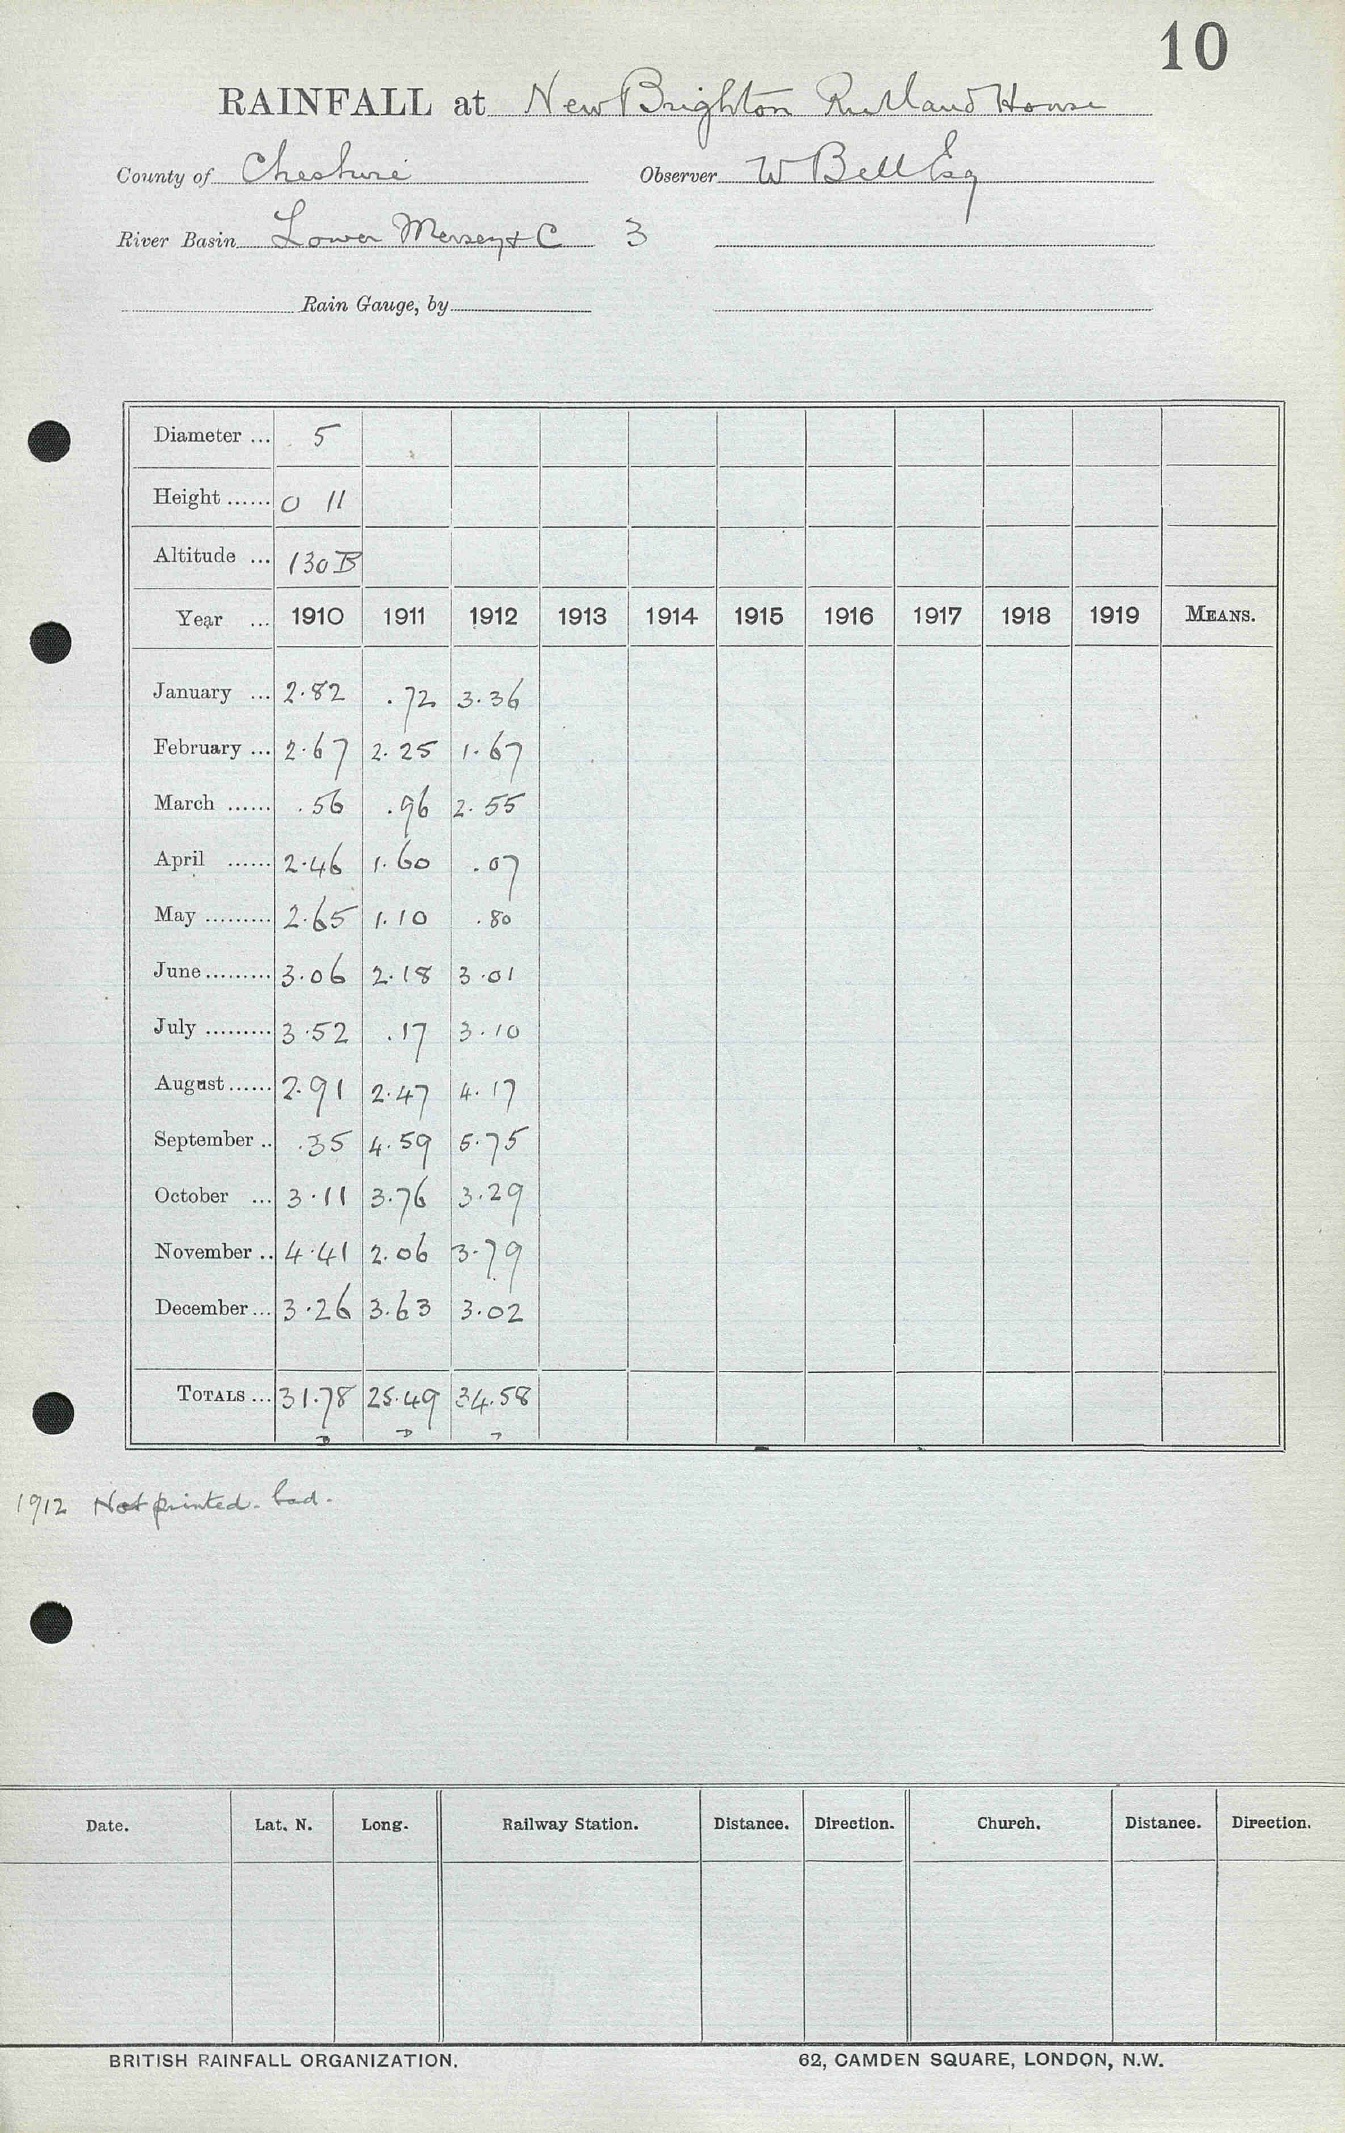 10
RAINFALL at New Brighton Rutland House
County of Cheshire Observer W Bell Esq
River Basin Lower Mersey & C 3
Rain Gauge, by
Diameter ... 5
Height ...... 0 11
Altitude ... 130 B
Year ... 1910 1911 1912 1913 1914 1915 1916 1917 1918 1919 MEANS.
January ... 2.82 .72 3.36
February ... 2.67 2.25 1.67
March ...... .56 .96 2.55
April ...... 2.46 1.60 .07
May ......... 2.65 1.10 .80
June ......... 3.06 2.18 3.01
July ......... 3.52 .17 3.10
August ...... 2.91 2.47 4.17
September .. .35 4.59 5.75
October ... 3.11 3.76 3.29
November .. 4.41 2.06 3.79
December ... 3.26 3.63 3.02
TOTALS ... 31.78 25.49 34.58
1912 Not printed - bad.
Date. Lat. N. Long. Railway Station. Distance. Direction. Church. Distance. Direction.
BRITISH RAINFALL ORGANIZATION. 62, CAMDEN SQUARE, LONDON, N.W.